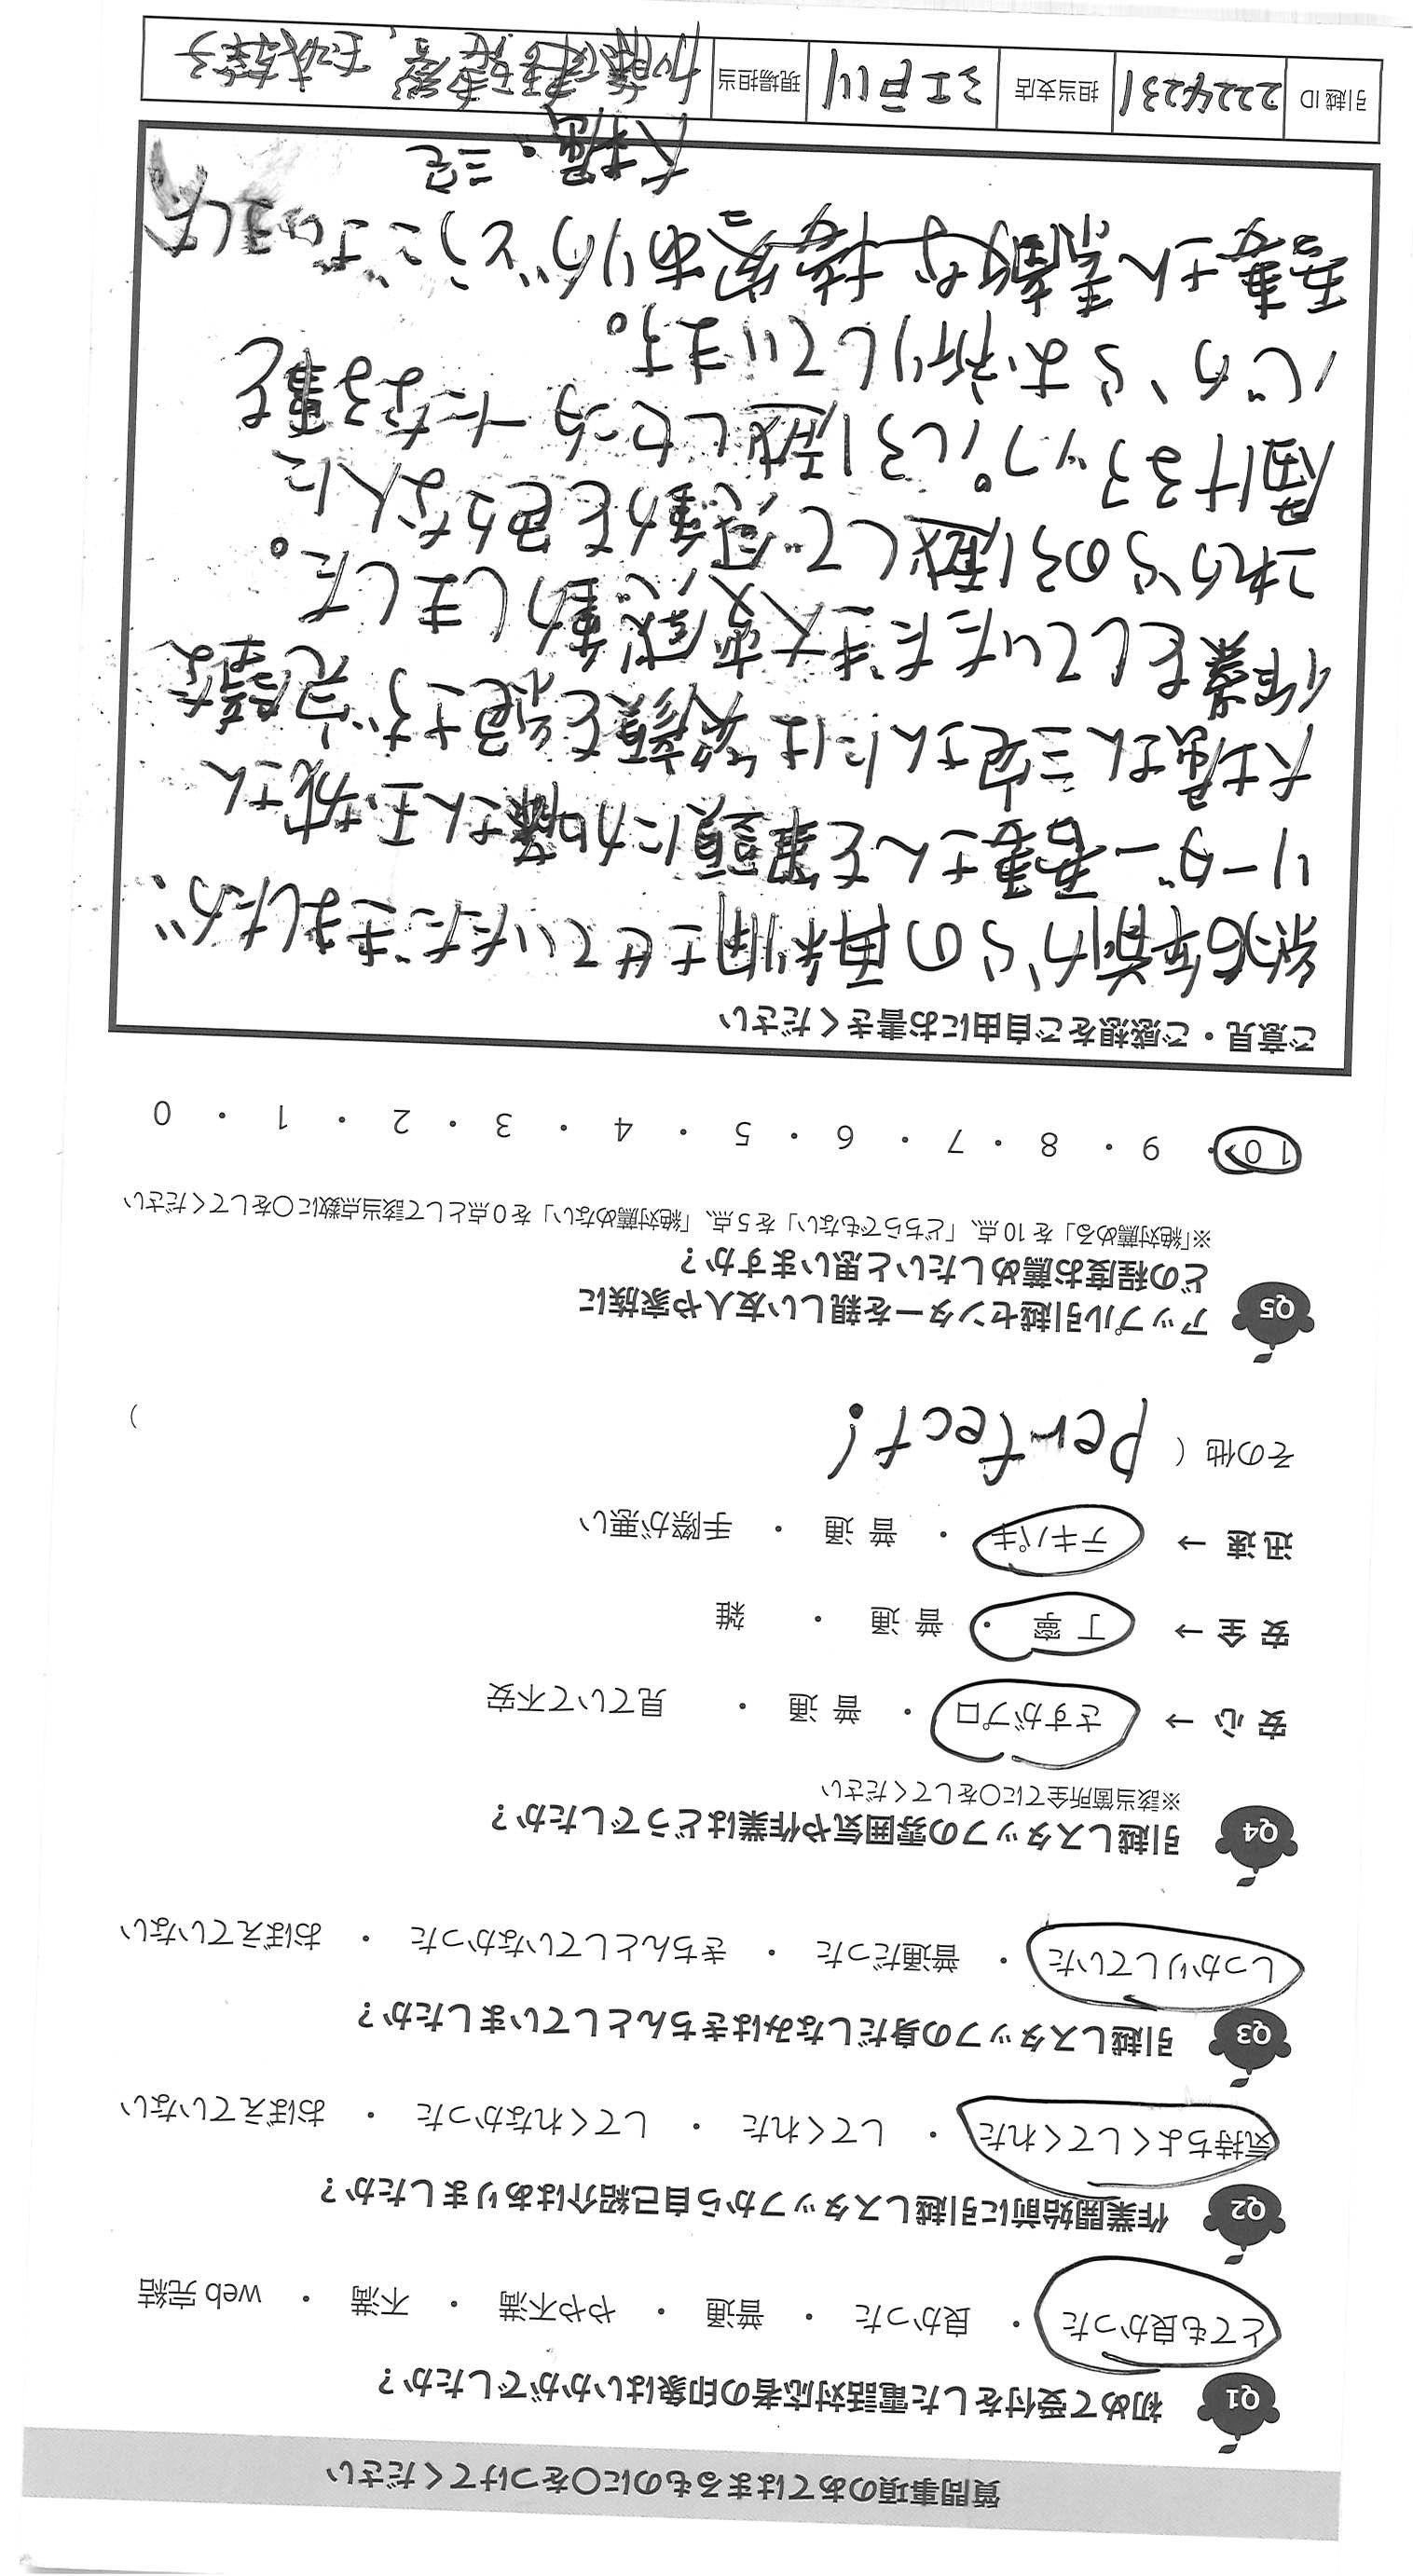 質問事項のあてはまるものに〇をつけてください
Q1 初めて受付をした電話対応者の印象はいかがでしたか？
とても良かった ・ 良かった ・ 普通 ・ やや不満 ・ 不満 ・ web 完結
Q2 作業開始前に引越しスタッフから自己紹介はありましたか？
気持ちよくしてくれた ・ してくれた ・ してくれなかった ・ おぼえていない
Q3 引越しスタッフの身だしなみはきちんとしていましたか？
しっかりしていた ・ 普通だった ・ きちんとしていなかった ・ おぼえていない
Q4 引越しスタッフの雰囲気や作業はどうでしたか？
※該当箇所全てに〇をしてください
安 心 → さすがプロ ・ 普 通 ・ 見ていて不安
安 全 → 丁 寧 ・ 普 通 ・ 雑
迅 速 → テキパキ ・ 普 通 ・ 手際が悪い
その他 （ Perfect! ）
Q5 アップル引越センターを親しい友人や家族に
どの程度お薦めしたいと思いますか？
※「絶対薦める」を 10 点、「どちらでもない」を 5 点、「絶対薦めない」を 0 点として該当点数に〇をしてください
10 ・ 9 ・ 8 ・ 7 ・ 6 ・ 5 ・ 4 ・ 3 ・ 2 ・ 1 ・ 0
ご意見・ご感想をご自由にお書きください
約6年前からの再利用させていただきましたが、
リーダー さんを筆頭に加藤さん玉城さん
大堀さん三宅さんには笑顔を絶さず完璧な
作業をしていただき大変感動しました。
これからの引越しで感動を色々な人に
届けるアップル引越しセンターになる事を
心からお祈りしています。
さん素敵な接客ありがとうございました
引越 ID 2224231 担当支店 江戸川 現場担当 加藤 、玉城
大堀、三宅